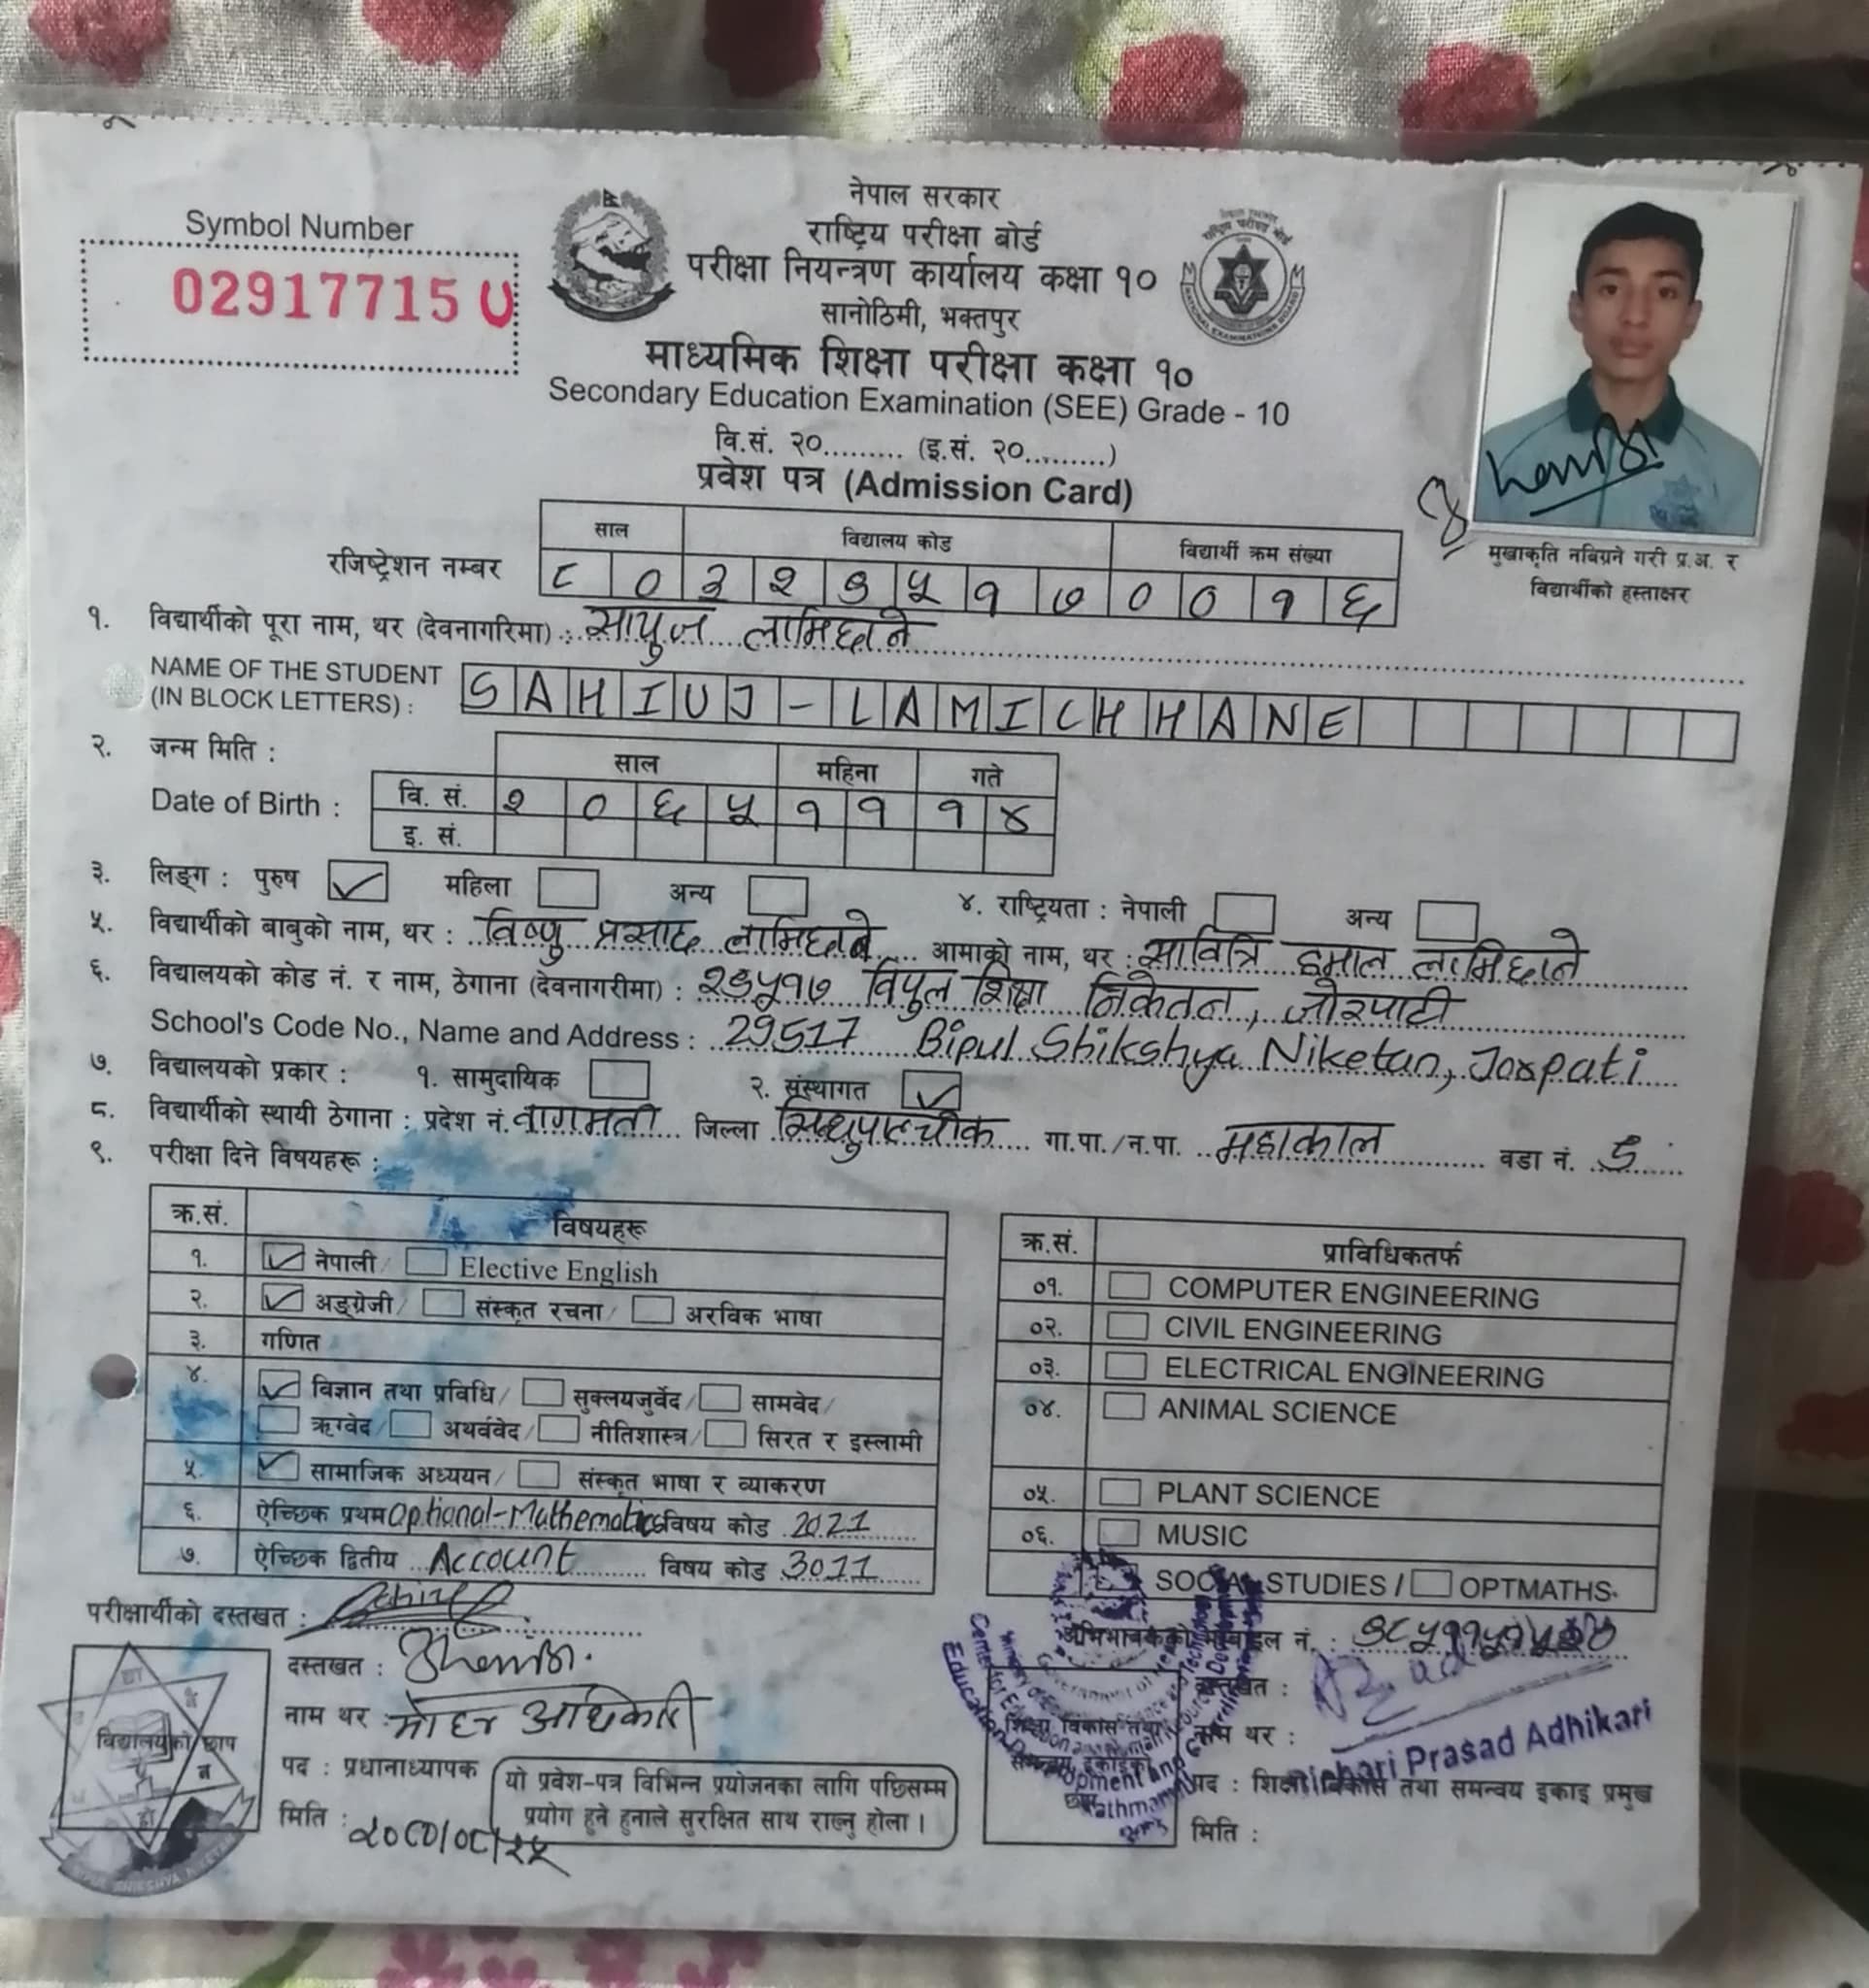 Symbol Number
02917715 U
नेपाल सरकार
राष्ट्रिय परीक्षा बोर्ड
परीक्षा नियन्त्रण कार्यालय कक्षा १०
सानोठिमी, भक्तपुर
माध्यमिक शिक्षा परीक्षा कक्षा १०
Secondary Education Examination (SEE) Grade - 10
वि.सं. २०......... (इ.सं. २०.........)
प्रवेश पत्र (Admission Card)
मुखाकृति नबिग्रने गरी प्र.अ. र
विद्यार्थीको हस्ताक्षर
साल विद्यालय कोड विद्यार्थी क्रम संख्या
रजिष्ट्रेशन नम्बर ८ ० ३ २ ९ ५ १ ७ ० ० १ ६
१. विद्यार्थीको पूरा नाम, थर (देवनागरिमा) : सायुज लामिछाने
NAME OF THE STUDENT
(IN BLOCK LETTERS) : SAHIUJ-LAMICHHANE
२. जन्म मिति : साल महिना गते
Date of Birth : वि. सं. २ ० ६ ५ १ १ १ ४
इ. सं.
३. लिङ्ग : पुरुष महिला अन्य ४. राष्ट्रियता : नेपाली अन्य
५. विद्यार्थीको बाबुको नाम, थर : विष्णु प्रसाद लामिछाने आमाको नाम, थर : सावित्रि हुमाल लामिछाने
६. विद्यालयको कोड नं. र नाम, ठेगाना (देवनागरीमा) : २९५१७ विपुल शिक्षा निकेतन, जोरपाटी
School's Code No., Name and Address : 29517 Bipul Shikshya Niketan, Jorpati
७. विद्यालयको प्रकार : १. सामुदायिक २. संस्थागत
८. विद्यार्थीको स्थायी ठेगाना : प्रदेश नं. वागमती जिल्ला सिन्धुपाल्चोक गा.पा./न.पा. महाकाल वडा नं. 5
९. परीक्षा दिने विषयहरू :
क्र.सं. विषयहरू
१. नेपाली/ Elective English
२. अङ्ग्रेजी/ संस्कृत रचना/ अरविक भाषा
३. गणित
४. विज्ञान तथा प्रविधि/ सुक्लयजुर्वेद/ सामवेद/
ऋग्वेद/ अथर्ववेद/ नीतिशास्त्र/ सिरत र इस्लामी
५. सामाजिक अध्ययन/ संस्कृत भाषा र व्याकरण
६. ऐच्छिक प्रथम Optional-Mathematics विषय कोड 2021
७. ऐच्छिक द्वितीय Account विषय कोड 3011
क्र.सं. प्राविधिकतर्फ
०१. COMPUTER ENGINEERING
०२. CIVIL ENGINEERING
०३. ELECTRICAL ENGINEERING
०४. ANIMAL SCIENCE
०५. PLANT SCIENCE
०६. MUSIC
SOCIAL STUDIES / OPTMATHS
परीक्षार्थीको दस्तखत :
दस्तखत :
नाम थर : मोहन अधिकारी
पद : प्रधानाध्यापक
मिति : २०८०/०८/२५
विद्यालयको छाप
यो प्रवेश-पत्र विभिन्न प्रयोजनका लागि पछिसम्म
प्रयोग हुने हुनाले सुरक्षित साथ राख्नु होला ।
अभिभावकको मोबाइल नं. :
दस्तखत :
नाम थर : Prasad Adhikari
पद : शिक्षा विकास तथा समन्वय इकाइ प्रमुख
मिति :
शिक्षा विकास तथा